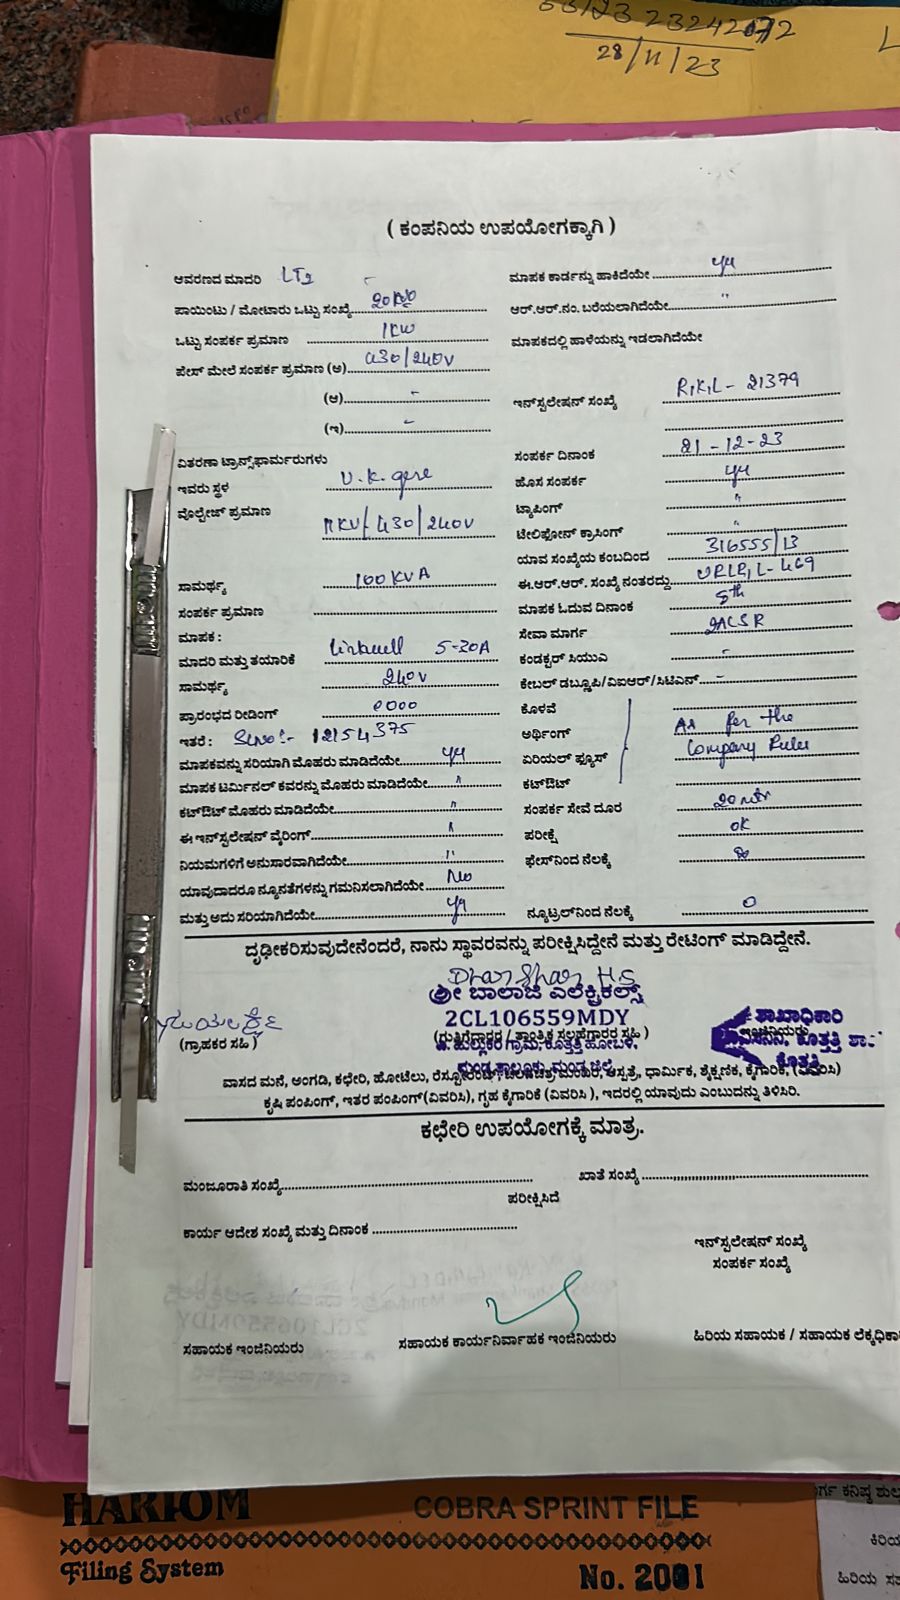 23242072
28/11/23
( ಕಂಪನಿಯ ಉಪಯೋಗಕ್ಕಾಗಿ )
ಆವರಣದ ಮಾದರಿ LT2
ಪಾಯಿಂಟು / ಮೋಟಾರು ಒಟ್ಟು ಸಂಖ್ಯೆ
ಒಟ್ಟು ಸಂಪರ್ಕ ಪ್ರಮಾಣ 1KW
ಪೇಸ್ ಮೇಲೆ ಸಂಪರ್ಕ ಪ್ರಮಾಣ (ಅ) 430/240V
(ಆ) -
(ಇ) -
ವಿತರಣಾ ಟ್ರಾನ್ಸ್‌ಫಾರ್ಮರುಗಳು
ಇವರು ಸ್ಥಳ V.K. gere
ವೊಲ್ಟೇಜ್ ಪ್ರಮಾಣ 11KV/430/240V
ಸಾಮರ್ಥ್ಯ 100KVA
ಸಂಪರ್ಕ ಪ್ರಮಾಣ
ಮಾಪಕ :
ಮಾದರಿ ಮತ್ತು ತಯಾರಿಕೆ Linkwell 5-30A
ಸಾಮರ್ಥ್ಯ 240V
ಪ್ರಾರಂಭದ ರೀಡಿಂಗ್ 0000
ಇತರೆ : SLNO:- 12154375
ಮಾಪಕವನ್ನು ಸರಿಯಾಗಿ ಮೊಹರು ಮಾಡಿದೆಯೇ
ಮಾಪಕ ಟರ್ಮಿನಲ್ ಕವರನ್ನು ಮೊಹರು ಮಾಡಿದೆಯೇ "
ಕಟ್‌ಔಟ್ ಮೊಹರು ಮಾಡಿದೆಯೇ "
ಈ ಇನ್‌ಸ್ಟಲೇಷನ್ ವೈರಿಂಗ್ "
ನಿಯಮಗಳಿಗೆ ಅನುಸಾರವಾಗಿದೆಯೇ "
ಯಾವುದಾದರೂ ನ್ಯೂನತೆಗಳನ್ನು ಗಮನಿಸಲಾಗಿದೆಯೇ No
ಮತ್ತು ಅದು ಸರಿಯಾಗಿದೆಯೇ
ಮಾಪಕ ಕಾರ್ಡನ್ನು ಹಾಕಿದೆಯೇ
ಆರ್.ಆರ್.ನಂ. ಬರೆಯಲಾಗಿದೆಯೇ "
ಮಾಪಕದಲ್ಲಿ ಹಾಳೆಯನ್ನು ಇಡಲಾಗಿದೆಯೇ
ಇನ್‌ಸ್ಟಲೇಷನ್ ಸಂಖ್ಯೆ R,K,L - 21379
ಸಂಪರ್ಕ ದಿನಾಂಕ 21-12-23
ಹೊಸ ಸಂಪರ್ಕ
ಟ್ಯಾಪಿಂಗ್ "
ಟೆಲಿಫೋನ್ ಕ್ರಾಸಿಂಗ್ "
ಯಾವ ಸಂಖ್ಯೆಯ ಕಂಬದಿಂದ 316555/13
ಈ.ಆರ್.ಆರ್. ಸಂಖ್ಯೆ ನಂತರದ್ದು
ಮಾಪಕ ಓದುವ ದಿನಾಂಕ
ಸೇವಾ ಮಾರ್ಗ 2ACSR
ಕಂಡಕ್ಟರ್ ಸಿಯುವಿ -
ಕೇಬಲ್ ಡಬ್ಲ್ಯೂಪಿ/ವಿಐಆರ್/ಸಿಟಿಎಸ್ -
ಕೊಳವೆ
ಅರ್ಥಿಂಗ್ As per the
ಏರಿಯಲ್ ಫ್ಯೂಸ್ Company Rules
ಕಟ್‌ಔಟ್
ಸಂಪರ್ಕ ಸೇವೆ ದೂರ 20 mtr
ಪರೀಕ್ಷೆ OK
ಫೇಸ್‌ನಿಂದ ನೆಲಕ್ಕೆ
ನ್ಯೂಟ್ರಲ್‌ನಿಂದ ನೆಲಕ್ಕೆ 0
ದೃಢೀಕರಿಸುವುದೇನೆಂದರೆ, ನಾನು ಸ್ಥಾವರವನ್ನು ಪರೀಕ್ಷಿಸಿದ್ದೇನೆ ಮತ್ತು ರೇಟಿಂಗ್ ಮಾಡಿದ್ದೇನೆ.
H S
ಶ್ರೀ ಬಾಲಾಜಿ ಎಲೆಕ್ಟ್ರಿಕಲ್ಸ್
2CL106559MDY
(ಗ್ರಾಹಕರ ಸಹಿ )
(ಗುತ್ತಿಗೆದಾರರ / ತಾಂತ್ರಿಕ ಸಲಹೆಗಾರರ ಸಹಿ )
ಶಾಖಾಧಿಕಾರಿ
ಇಂಜಿನಿಯರು
ಕೊತ್ತತ್ತಿ
ವಾಸದ ಮನೆ, ಅಂಗಡಿ, ಕಛೇರಿ, ಹೋಟೆಲು, ಆಸ್ಪತ್ರೆ, ಧಾರ್ಮಿಕ, ಶೈಕ್ಷಣಿಕ, ಕೈಗಾರಿಕೆ, (ವಿವರಿಸಿ)
ಕೃಷಿ ಪಂಪಿಂಗ್, ಇತರ ಪಂಪಿಂಗ್(ವಿವರಿಸಿ), ಗೃಹ ಕೈಗಾರಿಕೆ (ವಿವರಿಸಿ ), ಇದರಲ್ಲಿ ಯಾವುದು ಎಂಬುದನ್ನು ತಿಳಿಸಿರಿ.
ಕಛೇರಿ ಉಪಯೋಗಕ್ಕೆ ಮಾತ್ರ.
ಮಂಜೂರಾತಿ ಸಂಖ್ಯೆ ಖಾತೆ ಸಂಖ್ಯೆ
ಪರೀಕ್ಷಿಸಿದೆ
ಕಾರ್ಯ ಆದೇಶ ಸಂಖ್ಯೆ ಮತ್ತು ದಿನಾಂಕ
ಇನ್‌ಸ್ಟಲೇಷನ್ ಸಂಖ್ಯೆ
ಸಂಪರ್ಕ ಸಂಖ್ಯೆ
ಸಹಾಯಕ ಇಂಜಿನಿಯರು ಸಹಾಯಕ ಕಾರ್ಯನಿರ್ವಾಹಕ ಇಂಜಿನಿಯರು ಹಿರಿಯ ಸಹಾಯಕ / ಸಹಾಯಕ ಲೆಕ್ಕಧಿಕಾ
HARIOM COBRA SPRINT FILE
Filing System No. 2001